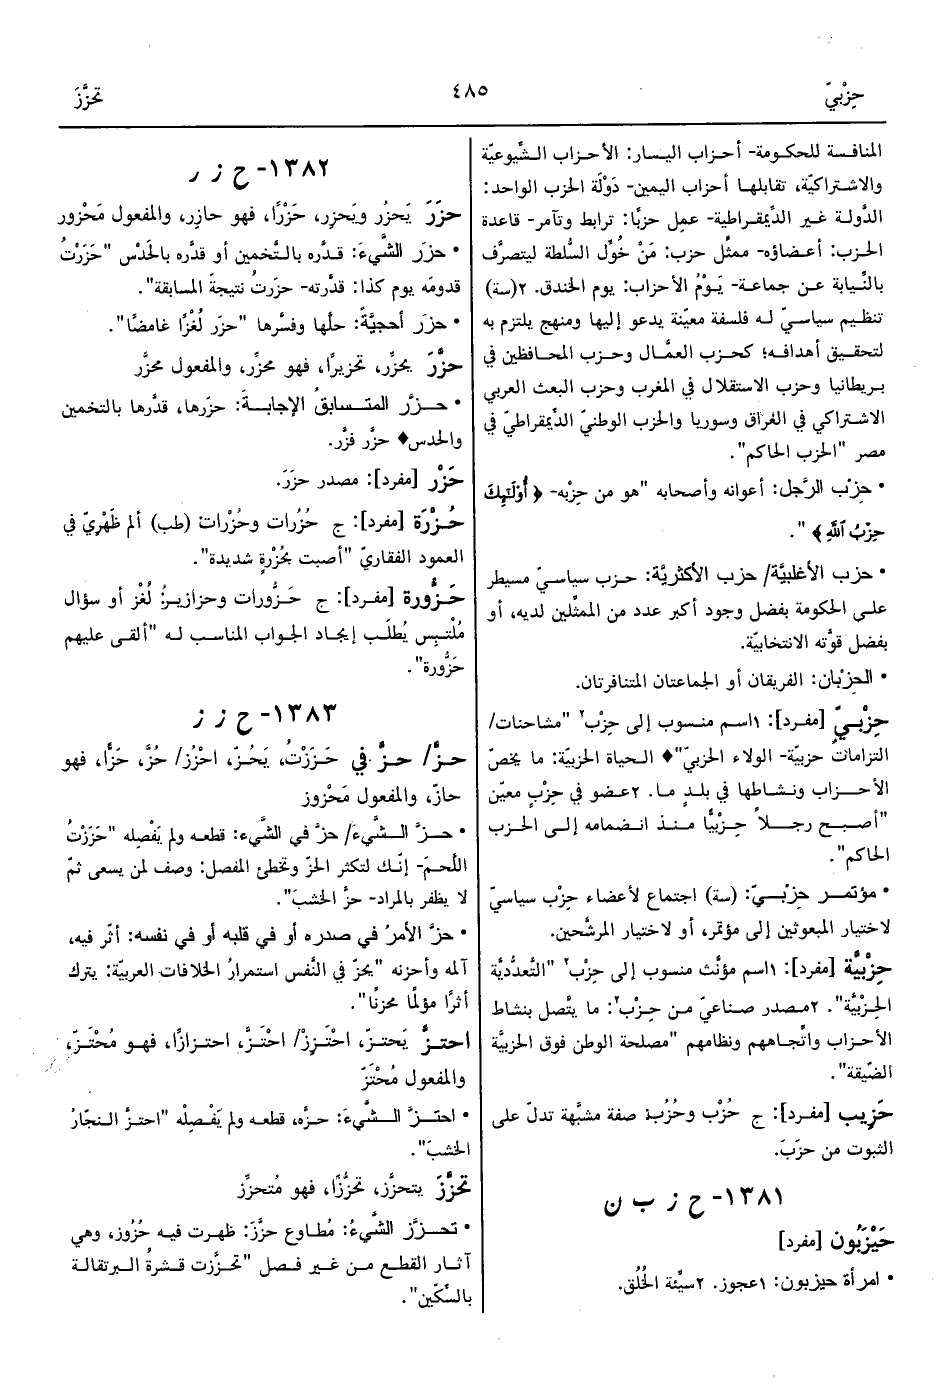 حِزْبيّ
٤٨٥
تحزَّزَ
المنافسة للحكومة- أحزاب اليسار: الأحزاب الشّيوعيّة
والاشتراكيّة، تقابلها أحزاب اليمين- دَوْلَة الحزب الواحد:
الدَّولة غير الدِّيمقراطية- عمِل حزبًا: ترابط وتآمر- قاعدة
الحزب: أعضاؤه- ممثِّل حزب: مَنْ خُوِّل السُّلطة ليتصرَّف
بالنِّيابة عن جماعة- يَوْمُ الأحزاب: يوم الخندق. ٢(سة)
تنظيم سياسيّ له فلسفة معيّنة يدعو إليها ومنهج يلتزم به
لتحقيق أهدافه؛ كحزب العمَّال وحزب المحافظين في
بريطانيا وحزب الاستقلال في المغرب وحزب البعث العربي
الاشتراكي في الغراق وسوريا والحزب الوطنيّ الدِّيمقراطيّ في
مصر "الحزب الحاكم".
• حِزْب الرَّجل: أعوانه وأصحابه "هو من حِزْبه- ﴿ أُوْلَٰٓئِكَ
حِزْبُ ٱللَّهِ ﴾ ".
• حزب الأغلبيَّة/ حزب الأكثريَّة: حزب سياسيّ مسيطر
على الحكومة بفضل وجود أكبر عدد من الممثّلين لديه، أو
بفضل قوَّته الانتخابيّة.
• الحِزْبان: الفريقان أو الجماعتان المتنافرتان.
حِزْبيّ [مفرد]: ١اسم منسوب إلى حِزْب٢ "مشاحنات/
التزامات حزبيّة- الولاء الحزبيّ"♦ الحياة الحزبيّة: ما يخصّ
الأحزاب ونشاطها في بلدٍ ما. ٢عضو في حِزْبٍ معيّن
"أصبح رجلاً حِزْبيًّا منذ انضمامه إلى الحزب
الحاكم".
• مؤتمر حِزْبيّ: (سة) اجتماع لأعضاء حِزْب سياسيّ
لاختيار المبعوثين إلى مؤتمر، أو لاختيار المرشَّحين.
حِزْبيَّة [مفرد]: ١اسم مؤنَّث منسوب إلى حِزْب٢ "التَّعدُّديَّة
الحِزْبيَّة". ٢مصدر صناعيّ من حِزْب٢: ما يتَّصل بنشاط
الأحزاب واتّجاههم ونظامهم "مصلحة الوطن فوق الحزبيَّة
الضّيقة".
حَزِيب [مفرد]: ج حُزْب وحُزُب: صفة مشبَّهة تدلّ على
الثبوت من حزَبَ.
١٣٨١- ح ز ب ن
حَيْزَبُون [مفرد]
• امرأة حيزبون: ١عجوز. ٢سيِّئة الخُلُق.
١٣٨٢- ح ز ر
حزَرَ يَحزُر ويَحزِر، حَزْرًا، فهو حازِر، والمفعول مَحْزور
• حزَر الشَّيءَ: قدَّره بالتَّخمين أو قدَّره بالحَدْس "حَزَرْتُ
قدومَه يوم كذا: قدَّرته- حزَرتُ نتيجةَ المسابقة".
• حزَر أحجيَّةً: حلَّها وفسَّرها "حزَر لُغْزًا غامضًا".
حزَّرَ يحزِّر، تحزيرًا، فهو محزِّر، والمفعول محزَّر
• حزَّر المتسابقُ الإجابةَ: حزرها، قدَّرها بالتخمين
والحدس♦ حزَّر فزَّر.
حَزْر [مفرد]: مصدر حزَرَ.
حُزْرَة [مفرد]: ج حُزُرات وحُزْرات: (طب) ألم ظَهْرِيّ في
العمود الفقاريّ "أصبت بحُزْرةٍ شديدة".
حَزُّورة [مفرد]: ج حَزُّورات وحزازيرُ: لُغز أو سؤال
مُلْتبِس يُطلَب إيجاد الجواب المناسب له "ألقى عليهم
حَزُّورة".
١٣٨٣- ح ز ز
حزَّ/ حزَّ في حَزَزْتُ، يَحُزّ، احْزُز/ حُزَّ، حَزًّا، فهو
حازّ، والمفعول مَحْزوز
• حزَّ الشَّيءَ/ حزَّ في الشَّيء: قطعه ولم يَفْصِله "حَزَزْتُ
اللَّحمَ- إنّك لتكثر الحزّ وتخطئ المفصل: وصف لمن يسعى ثمّ
لا يظفر بالمراد- حزَّ الخشبَ".
• حزَّ الأمرُ في صدره أو في قلبه أو في نفسه: أثّر فيه،
آلمه وأحزنه "يحزّ في النَّفس استمرارُ الخلافات العربيّة: يترك
أثرًا مؤلمًا محزنًا".
احتزَّ يَحتزّ، احْتَزِزْ/ احْتَزَّ، احتزازًا، فهو مُحْتَزّ،
والمفعول مُحْتَزّ
• احتزَّ الشَّيءَ: حزَّه، قطعه ولم يَفْصِله "احتزَّ النجّارُ
الخشبَ".
تحزَّزَ يتحزَّز، تحزُّزًا، فهو مُتحزِّز
• تحزَّز الشَّيءُ: مُطاوع حزَّزَ: ظهرت فيه حُزُوز، وهي
آثار القطع من غير فصل "تحزَّزت قشرةُ البرتقالة
بالسِّكّين".